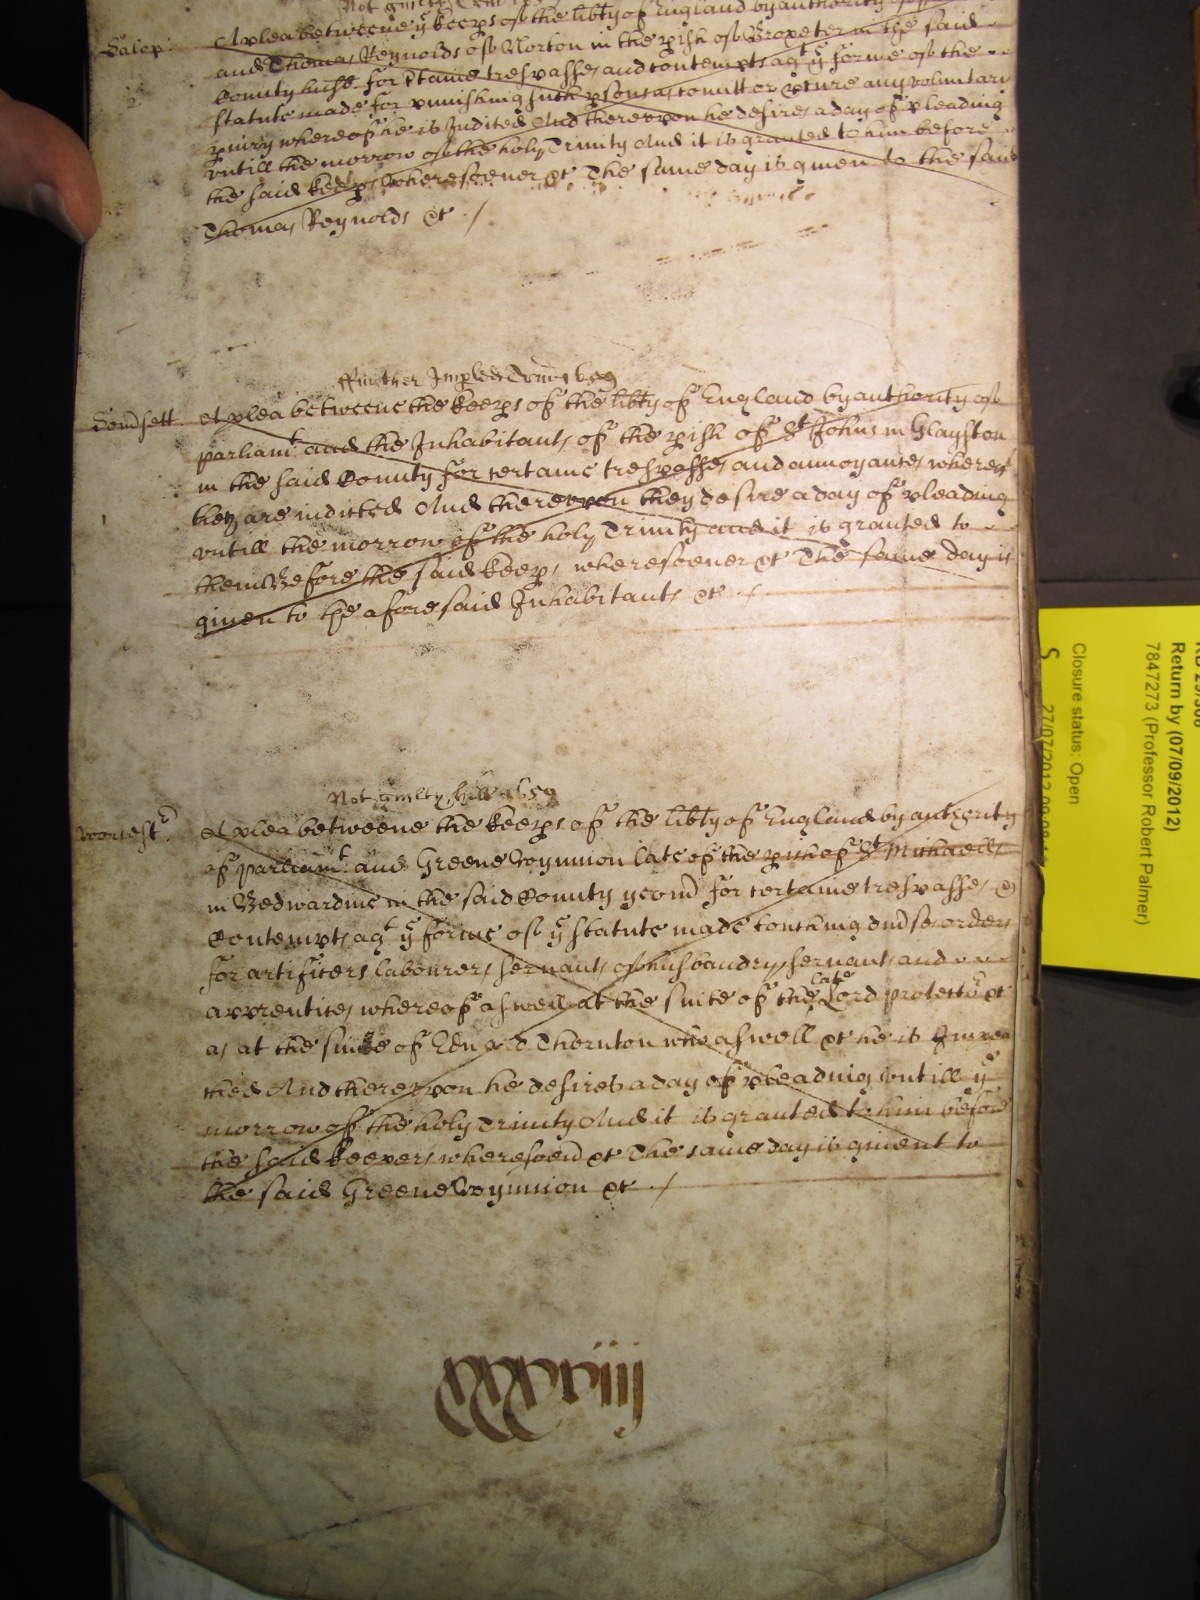 Not guilty
Salop: A plea betweene yͤ keep̱s of the lib̃ty of England by authority of
and Thomas Reynolds of Norton in the p̱ish of Wroxeter in the said
County husb for c̃taine trespasses and contempts agᵗ yͤ forme of the
statute made for punishing such p̱sons as comitt or p̱cure any voluntary
p̱iury whereof he is Indited And thereupon he desires a day of pleading
vntill the morrow of the holy Trinity And it is granted to him before
the said keep̱s wheresoever &c The same day is given to the said
Thomas Reynolds &c ./
ffurther Imp̱led Trin̄
Som̃sett. A plea betweene the keep̱s of the lib̃ty of England by authority of
parliamᵗ and the Inhabitants of the p̱ish of Sᵗ Johns in Glaston
in the said County for certaine trespasses and annoyances whereof
they are indicted And thereupon they desire a day of pleading
vntill the morrow of the holy Trinity and it is granted to
them Before the said keep̱s wheresoever &c The same day is
given to the aforesaid Inhabitants &c ./
Not guilty Hill 1659
Worcestʳ. A plea betweene the keep̱s of the lib̃ty of England by authority
of parliamᵗ. and Greene Wynnion late of the p̱ish of Sᵗ Michaells
in Bedwardine in the said County yeom̃ for certaine trespasses &
Contempts agᵗ yͤ forme of yͤ statute made touching div̄se orders
for artificers labourers servants of husbandry servants and
apprentices whereof aswell at the suite of the late Lord protectoʳ &c
as at the suite of Edward Thornton who aswell &c he is Impea
ched And thereupon he desires a day of pleading vntill yͤ
morrow of the holy Trinity And it is granted to him before
the said keepers wheresoev̄ &c The same day is given to
the said Greene Wynnion &c ./
Closure status: Open
Return by (07/09/2012)
7847273 (Professor Robert Palmer)
S
27/07/2012